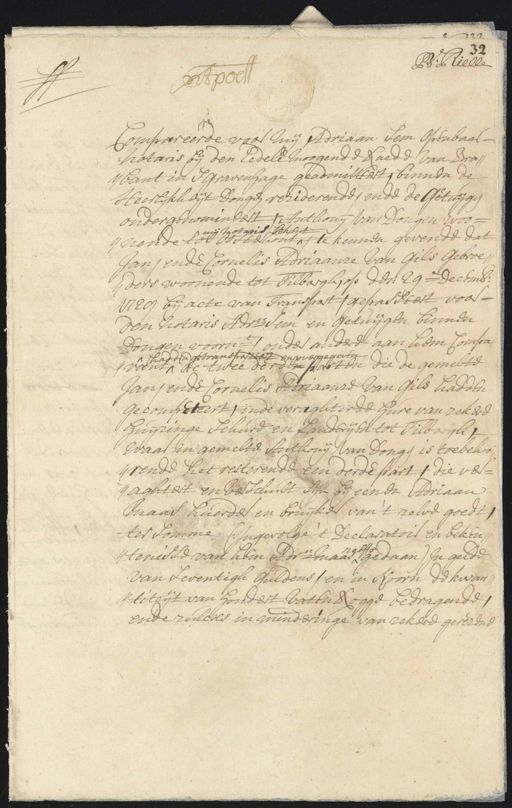 32
Compareerde voor mij Adriaan Sem openbaar
notaris bij den Edele hoogende Raede van Bra
bant in s'Gravenhage geadmitteert, binnen de
Heerlykhijt Donge, residerende, ende de Getuijge
ondergenomineert, Anthonij van Dongen woo
nende tot
mij notaris bekent
te kennen gevende dat
Jan, ende Cornelis Adriaanze van Gils Gebroe
ders woonende tot Tilborgh, op den 29en decemb:
bij acte van Transport, gepasseert voor
den notaris Adrn Sem en Getuijgen binnen
Dongen voornt, onder andere aan hem Compa
rant
hadden getransporteert
de twee derde parten die de gemelte
Jan, ende Cornelis Adriaanze van Gils hadden
in de veraghterde hure van zekere
Huijsinge Schuur en Landerijen tot Tilborgh,
waar in gemelte Anthonij van Donge is toebehoo
rende het resterende een derde part, die ver
aghtert en beschult zijn bij eenen Adriaan
Snaas huerder en bruijker van 't zelve goedt,
ter somme (ingevolge 't Declaratoir en beken
tenisse van den Adrn Snaas gedaan) in gelde
van seventigh guldens, en in koorn de quan
titijt van hondert vaten Rogge bedragende,
ende zulcx in minderinge van zekere